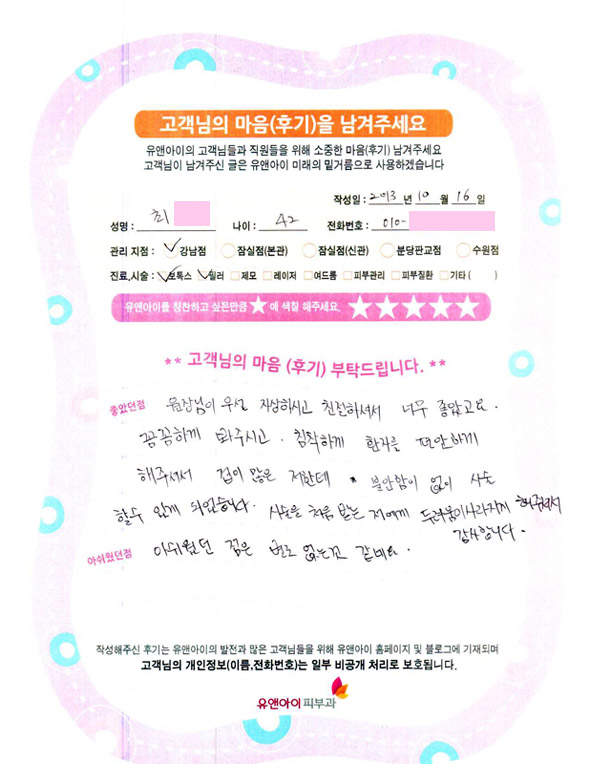 고객님의 마음(후기)을 남겨주세요
유앤아이의 고객님들과 직원들을 위해 소중한 마음(후기) 남겨주세요
고객님이 남겨주신 글은 유앤아이 미래의 밑거름으로 사용하겠습니다
작성일 : 2013 년 10 월 16 일
성명 : 최 나이 : 42 전화번호 : 010-
관리 지점 : 강남점 잠실점(본관) 잠실점(신관) 분당판교점 수원점
진료,시술 : 보톡스 필러 제모 레이저 여드름 피부관리 피부질환 기타 ( )
유앤아이를 칭찬하고 싶은만큼 ★ 에 색칠 해주세요. ★★★★★
** 고객님의 마음 (후기) 부탁드립니다. **
좋았던점 원장님이 우선 자상하시고 친절하셔서 너무 좋았고요.
꼼꼼하게 봐주시고. 침착하게 환자를 편안하게
해주셔서 겁이 많은 저한테 불안함이 없이 시술
할수 있게 되었습니다. 시술을 처음 받는 저에게 두려움이 사라지게 해주셔서
감사합니다.
아쉬웠던점 아쉬웠던 점은 별로 없는것 같네요.
작성해주신 후기는 유앤아이의 발전과 많은 고객님들을 위해 유앤아이 홈페이지 및 블로그에 기재되며
고객님의 개인정보(이름,전화번호)는 일부 비공개 처리로 보호됩니다.
유앤아이피부과